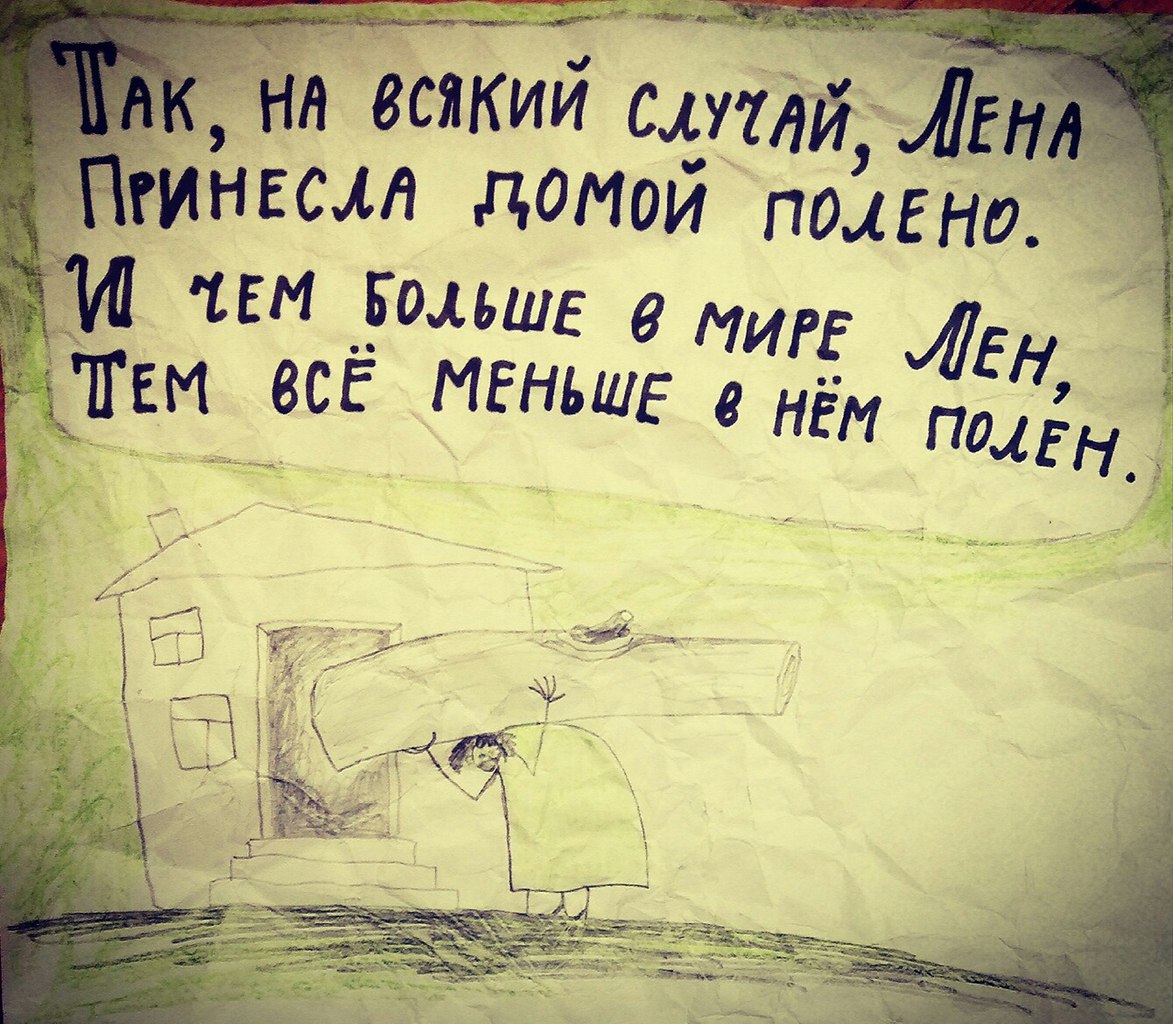 Так, на всякий случай, Лена
Принесла домой полено.
И чем больше в мире Лен,
Тем всё меньше в нём полен.